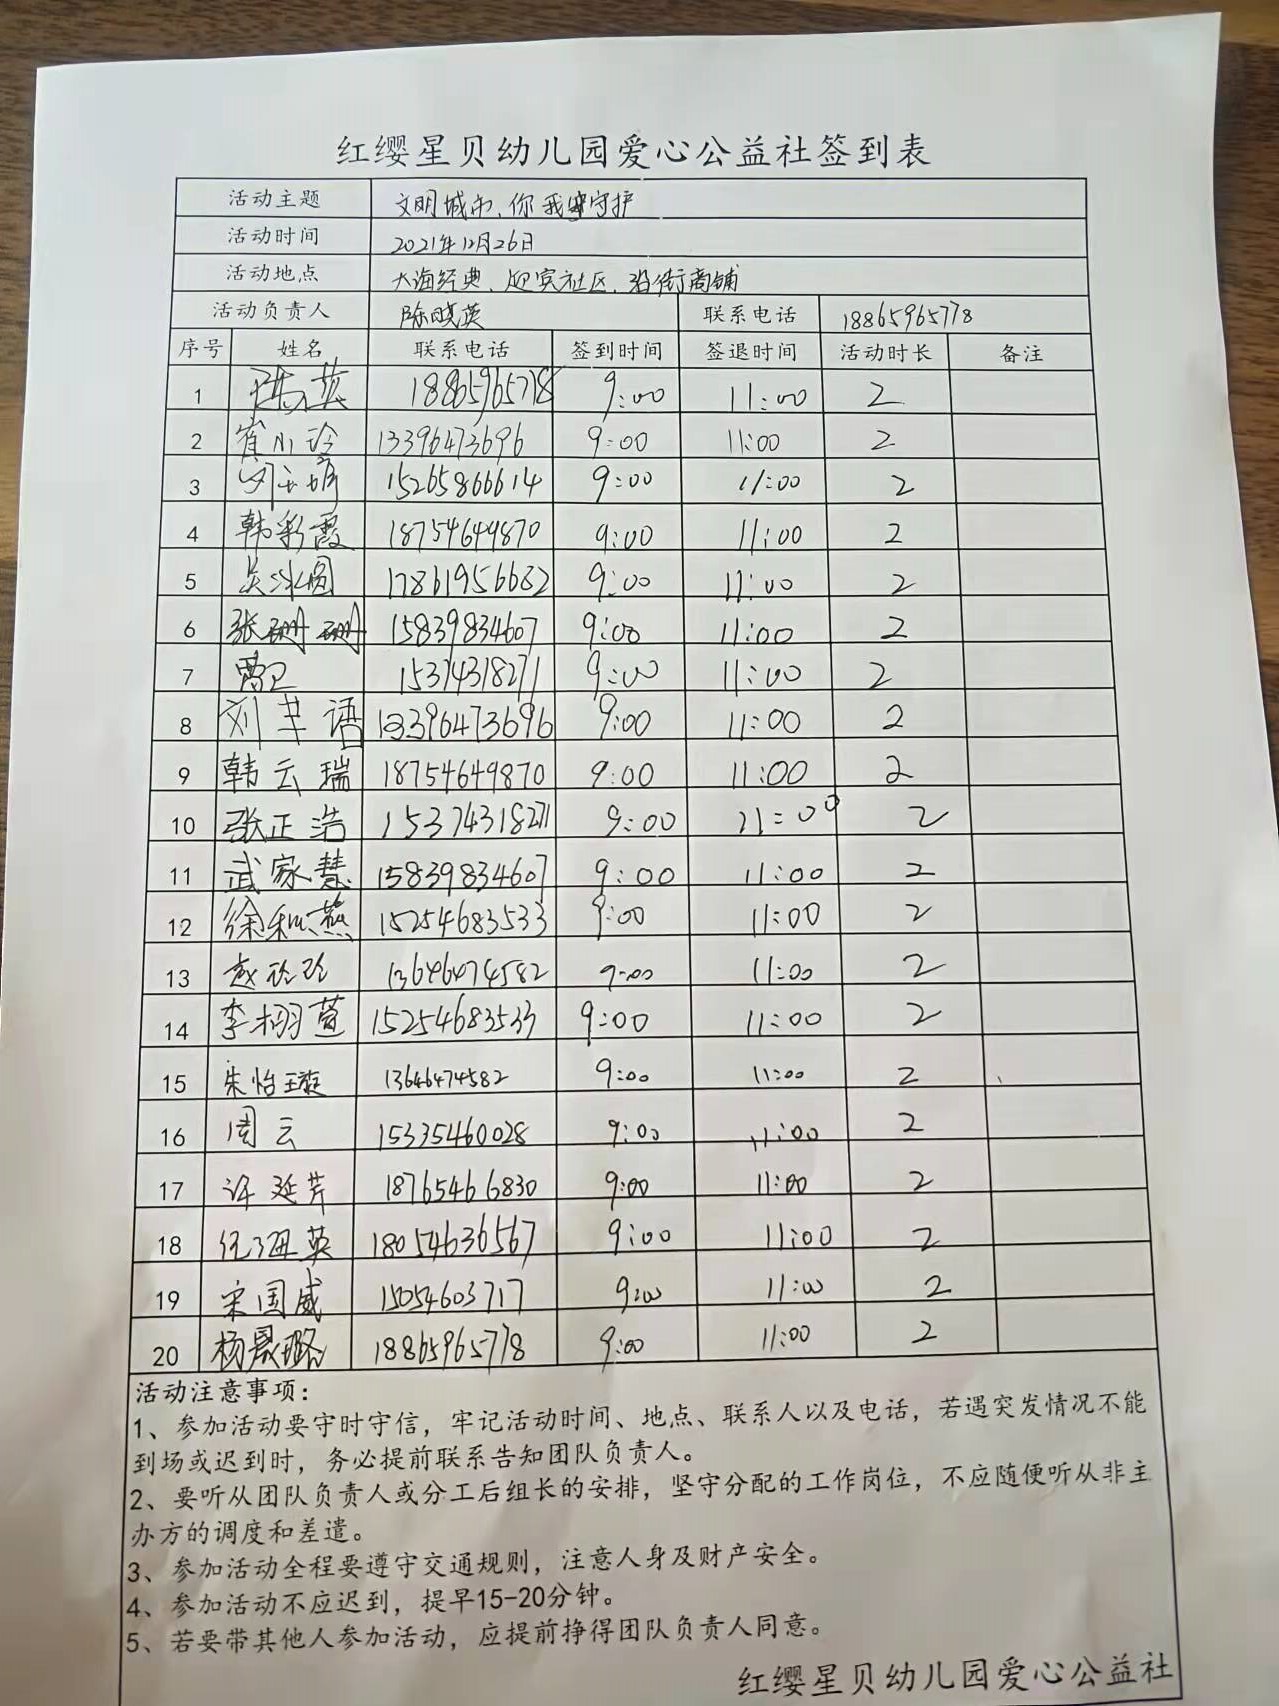 红缨星贝幼儿园爱心公益社签到表
活动主题 文明城市、你我守护
活动时间 2021年12月26日
活动地点 大海经典、迎宾社区、沿街商铺
活动负责人 陈晓英 联系电话 18865965778
序号 姓名 联系电话 签到时间 签退时间 活动时长 备注
1 18865965778 9:00 11:00 2
2 崔小玲 13396473696 9:00 11:00 2
3 15265866614 9:00 11:00 2
4 韩彩霞 18754649870 9:00 11:00 2
5 吴冰圆 17861956682 9:00 11:00 2
6 张珊珊 15839834607 9:00 11:00 2
7 贾卫 15374318271 9:00 11:00 2
8 刘芊语 13396473696 9:00 11:00 2
9 韩云瑞 18754649870 9:00 11:00 2
10 张正浩 15374318271 9:00 11:00 2
11 武家慧 15839834607 9:00 11:00 2
12 徐和燕 15254683533 9:00 11:00 2
13 赵玲玲 13646474582 9:00 11:00 2
14 李栩萱 15254683533 9:00 11:00 2
15 朱怡璇 13646474582 9:00 11:00 2
16 周云 15335460028 9:00 11:00 2
17 许延芹 18765466830 9:00 11:00 2
18 任海英 18054636567 9:00 11:00 2
19 宋国威 15054603717 9:00 11:00 2
20 杨晟璐 18865965778 9:00 11:00 2
活动注意事项:
1、参加活动要守时守信，牢记活动时间、地点、联系人以及电话，若遇突发情况不能
到场或迟到时，务必提前联系告知团队负责人。
2、要听从团队负责人或分工后组长的安排，坚守分配的工作岗位，不应随便听从非主
办方的调度和差遣。
3、参加活动全程要遵守交通规则，注意人身及财产安全。
4、参加活动不应迟到，提早15-20分钟。
5、若要带其他人参加活动，应提前挣得团队负责人同意。
红缨星贝幼儿园爱心公益社